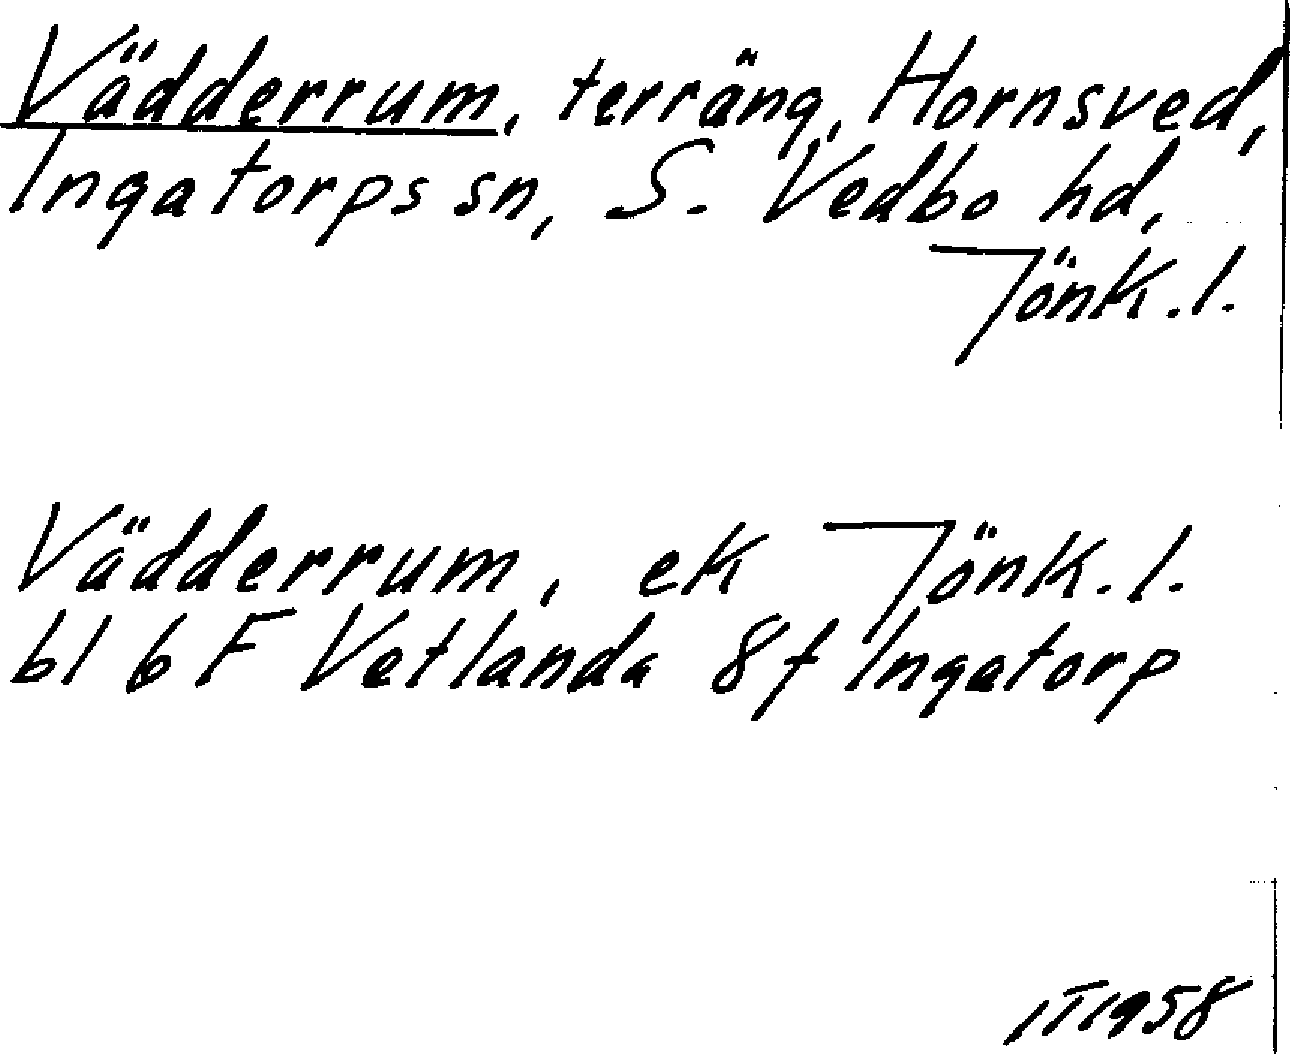 Vädderrum, terräng, Hornsved,
Ingatorps sn, S. Vedbo hd,
Jönk. l.
Vädderrum, ek Jönk. l.
bl 6 F Vetlanda 8f Ingatorp
IT 1958